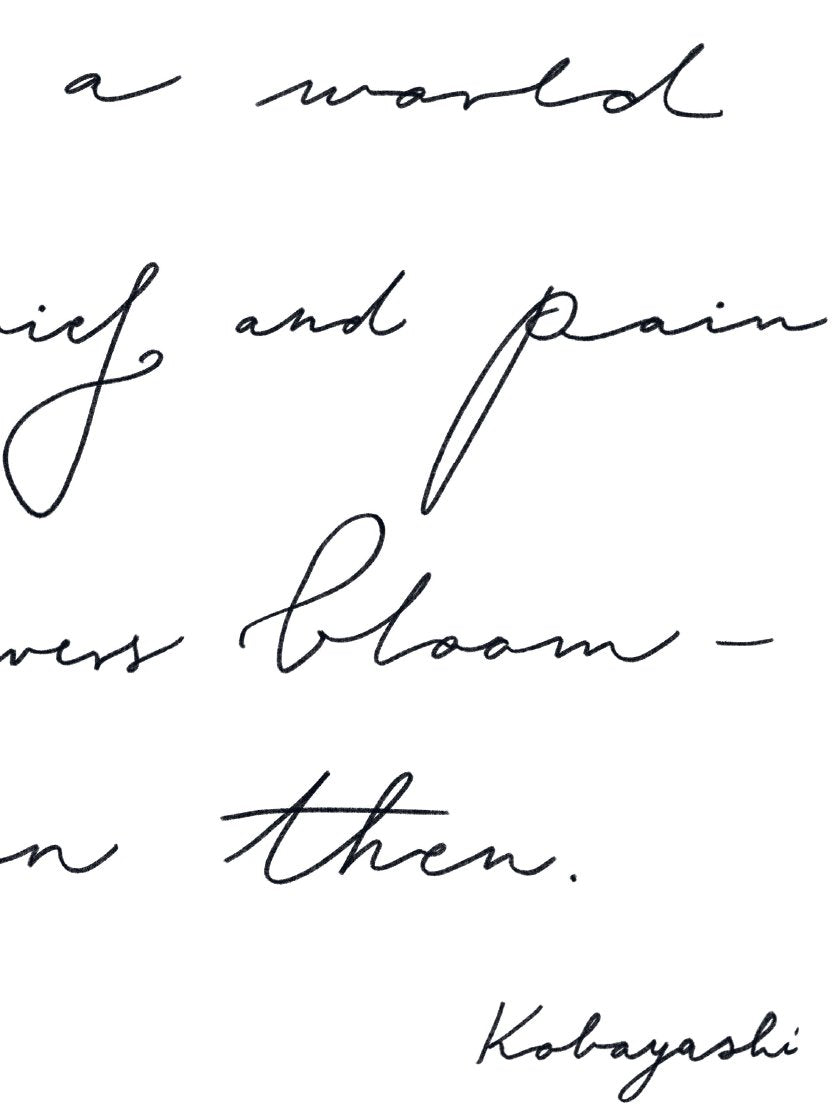 a world
ief and pain
wers bloom -
n then.
Kobayashi